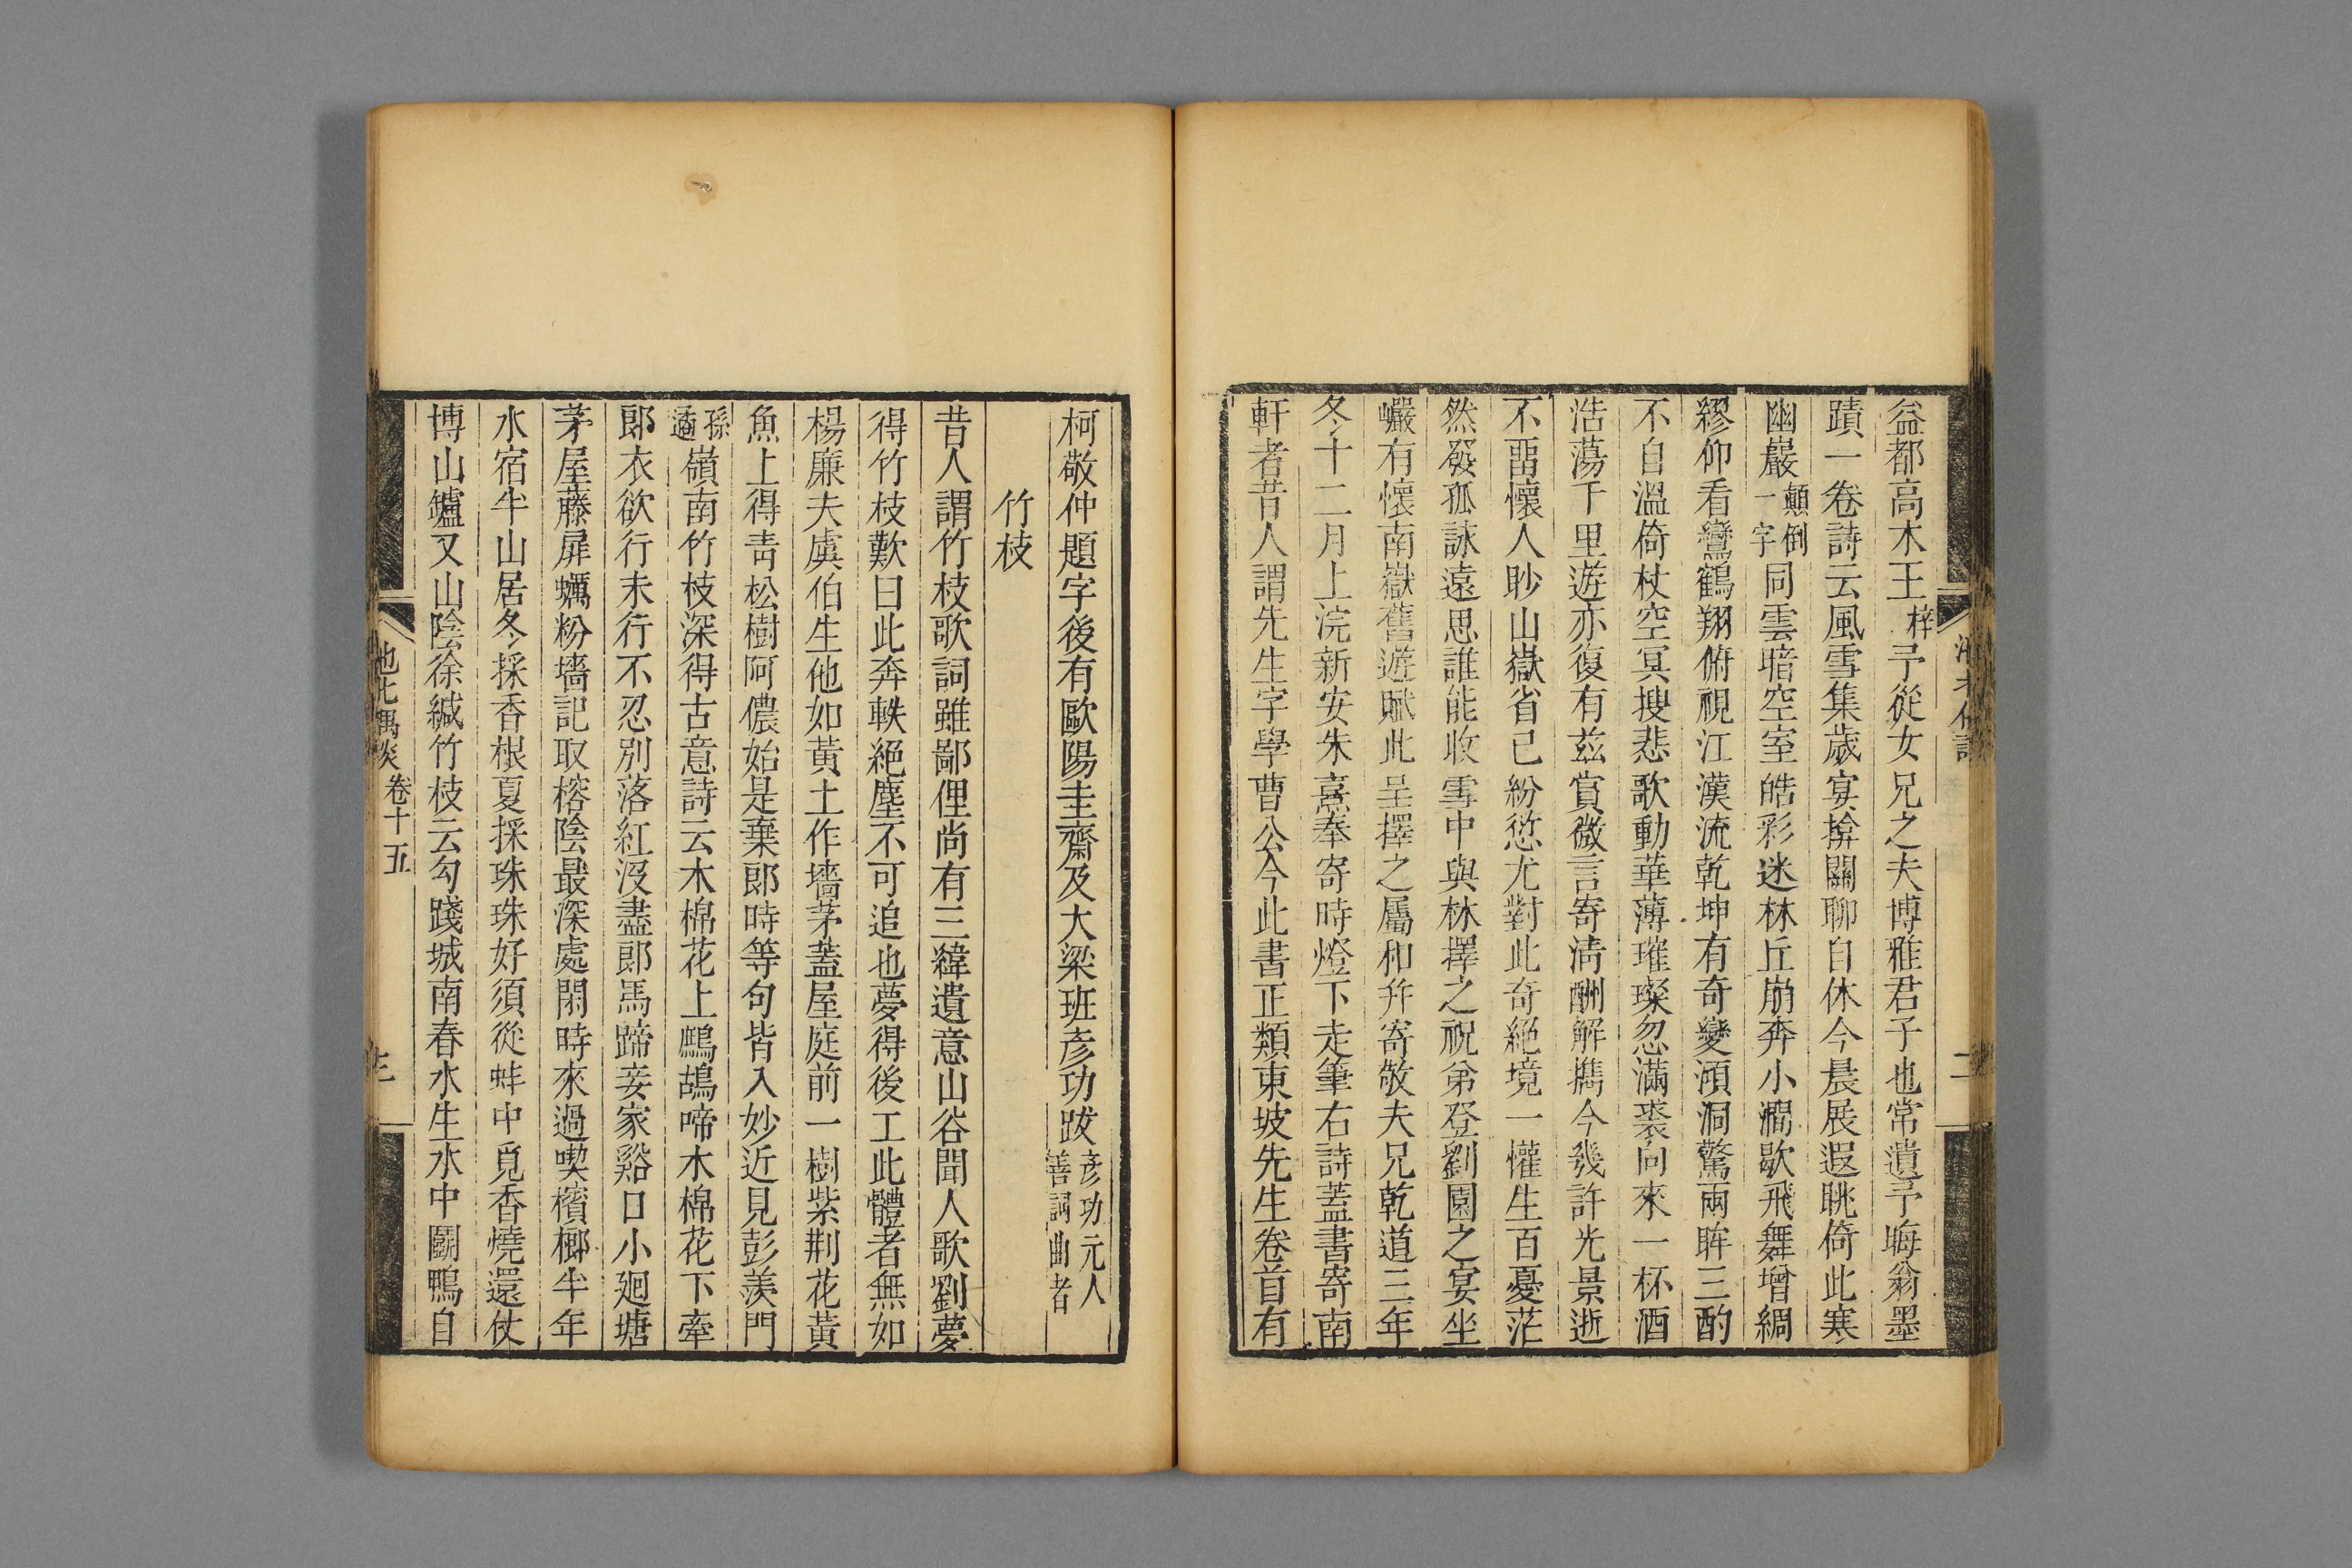 益都高木王梓予從女兄之夫博雅君子也常遺予晦翁墨
蹟一卷詩云風雪集歲宴掩關聊自休今晨展遐眺倚此寒
幽巖顛倒一字同雲暗空室皓彩迷林丘崩奔小澗歇飛舞增綢
繆仰看鸞鶴翔俯視江漢流乾坤有奇變澒洞驚兩眸三酌
不自溫倚杖空冥搜悲歌動華薄璀璨忽滿裘向來一杯酒
浩蕩千里遊亦復有茲賞微言寄清酬解攜今幾許光景逝
不畱懷人眇山嶽省已紛愆尤對此奇絕境一懽生百憂茫
然發孤詠遠思誰能收雪中與林擇之祝弟登劉園之宴坐
巖有懷南嶽舊遊賦此呈擇之屬和幷寄敬夫兄乾道三年
冬十二月上浣新安朱熹奉寄時燈下走筆右詩蓋書寄南
軒者昔人謂先生字學曹公今此書正類東坡先生卷首有
柯敬仲題字後有歐陽圭齋及大梁班彥功跋彥功元人善詞曲者
竹枝
昔人謂竹枝歌詞雖鄙俚尚有三緯遺意山谷聞人歌劉夢
得竹枝歎曰此奔軼絕塵不可追也夢得後工此體者無如
楊廉夫虞伯生他如黃土作墻茅蓋屋庭前一樹紫荆花黃
魚上得靑松樹阿儂始是棄郞時等句皆入妙近見彭羨門
孫遹嶺南竹枝深得古意詩云木棉花上鷓鴣啼木棉花下牽
郞衣欲行未行不忍別落紅沒盡郞馬蹄妾家谿口小廻塘
茅屋藤扉蠣粉墻記取榕陰最深處閑時來過喫檳榔半年
水宿半山居冬採香根夏採珠珠好須從蚌中覓香燒還仗
博山鑪又山陰徐緘竹枝云勾踐城南春水生水中鬭鴨自
池北偶談 卷十五